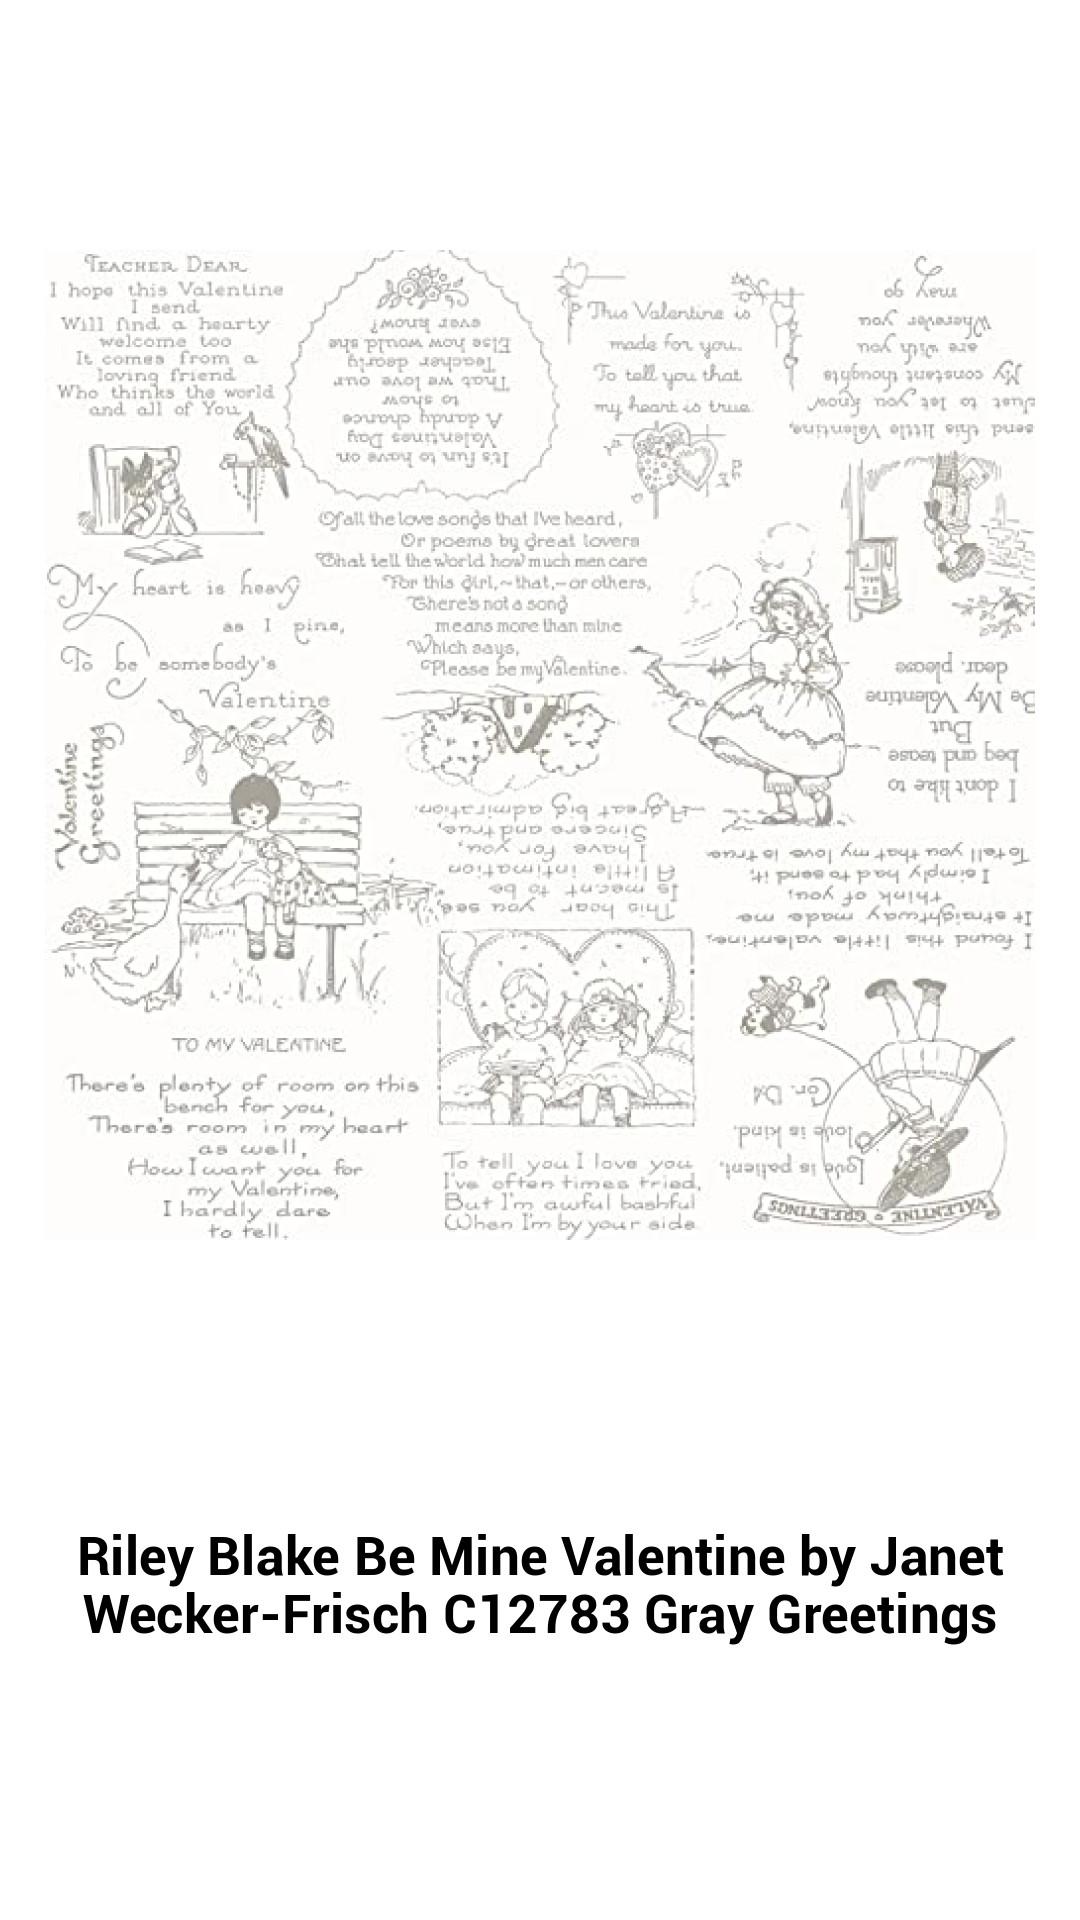 TEACHER DEAR
I hope this Valentine
I send
Will find a hearty
welcome too
It comes from a
loving friend
Who thinks the world
and all of You
It's fun to have on
Valentines Day
A dandy chance
to show
That we love our
Teacher dearly
Else how would she
ever know!
This Valentine is
made for you.
To tell you that
my heart is true.
send this little Valentine,
Just to let you know
My constant thoughts
are with you
Wherever you
may go
Of all the love songs that I've heard,
Or poems by great lovers
That tell the world how much men care
For this girl,~that,~or others,
There's not a song
means more than mine
Which says,
Please be my Valentine.
My heart is heavy
as I pine,
To be somebody's
Valentine
Valentine
Greetings
I don't like to
beg and tease
But
Be My Valentine
dear, please
This hear you see
Is meant to be
A little intimation
I have for you,
Sincere and true,
A great big admiration.
I found this little valentine;
It straightway made me
think of you;
I simply had to send it;
To tell you that my love is true
TO MY VALENTINE
There's plenty of room on this
bench for you,
There's room in my heart
as well,
How I want you for
my Valentine,
I hardly dare
to tell.
To tell you I love you
I've often times tried,
But I'm awful bashful
When I'm by your side.
VALENTINE GREETINGS
Love is patient,
love is kind.
Cor.
Riley Blake Be Mine Valentine by Janet
Wecker-Frisch C12783 Gray Greetings